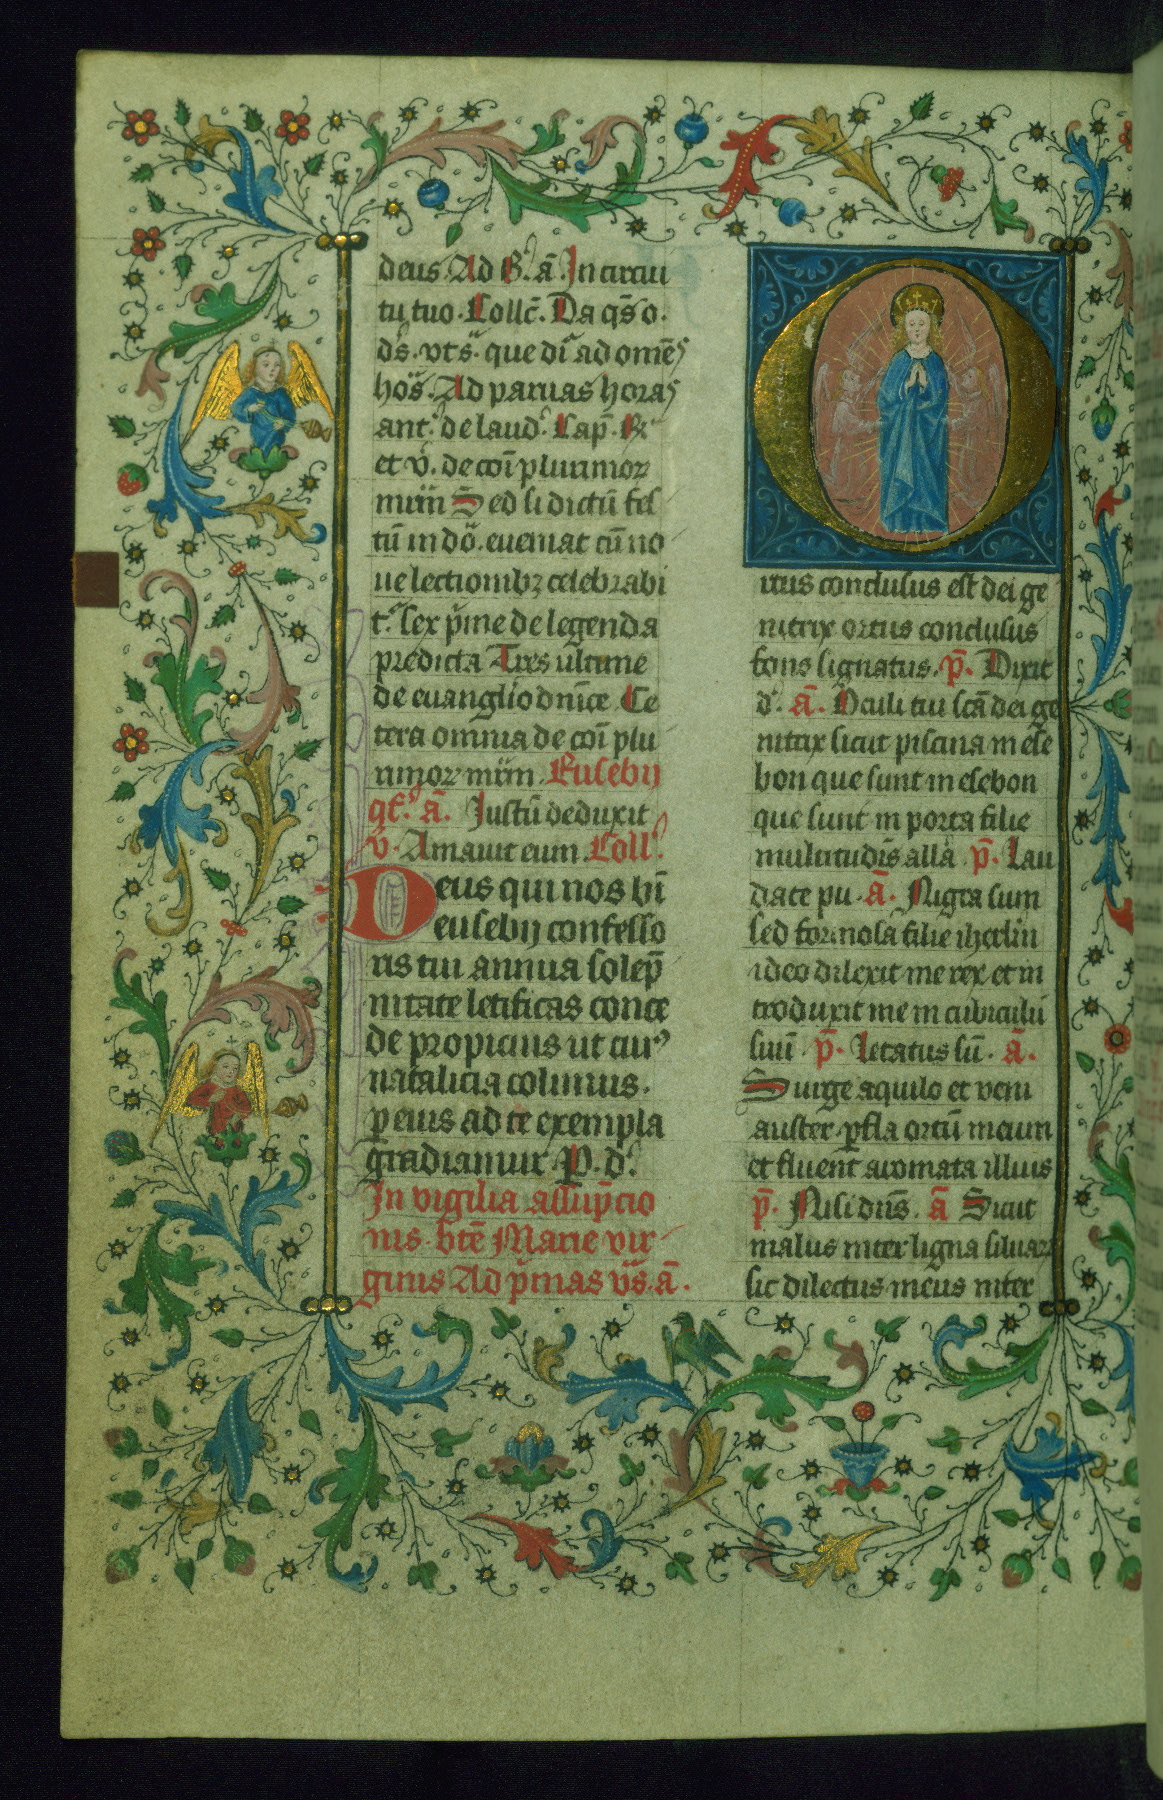 deus. Ad B᷒. ā. In circui
tu tuo. Collc̄. Da qs̄ o.
ds̄. vt s̄. que di᷒ ad om̄es
hoīs. Ad paruas horas
ant᷒. de laud᷒. Cap̄. R
et v̄. de cōi plurimor
mr̄m Sed si dictū fes
tū in dō. eueniat cū no
ue lectionibꝫ celebrabi
t᷒. sex p̄me de legenda
predicta Tres ultime
de euanglio dn̄ice. Ce
tera omnia de cōi plu
rimor mr̄m. Eusebij
ꝯf᷒. ā. Justū deduxit
v̄. Amauit eum. Coll᷒.
Deus qui nos bt̄i
eusebij confesso
ris tui annua solep̄
nitate letificas conce
de propicius ut cuiꝰ
natalicia colimus.
ꝑ eius ad te exempla
gradiamur. P. d᷒.
In vigilia assūpcio
nis. btē Marie vir
ginis Ad p̄mas vs̄. ā.
O
rtus conclusus est dei ge
nitrix ortus conclusus
fons signatus. p̄. Dixit
d᷒. ā. Oculi tui scā dei ge
nitrix sicut piscina in ese
bon que sunt in esebon
que sunt in porta filie
multitudīs alla. p̄. Lau
date pu. ā. Nigra sum
sed formosa filie iherlm
ideo dilexit me rex et in
troduxit me in cubiculū
suū. p̄. Letatus sū. ā.
Surge aquilo et veni
auster ꝑfla ortū meum
et fluent aromata illius
p̄. Nisi dn̄s. ā Sicut
malus inter ligna siluarꝝ
sic dilectus meus inter